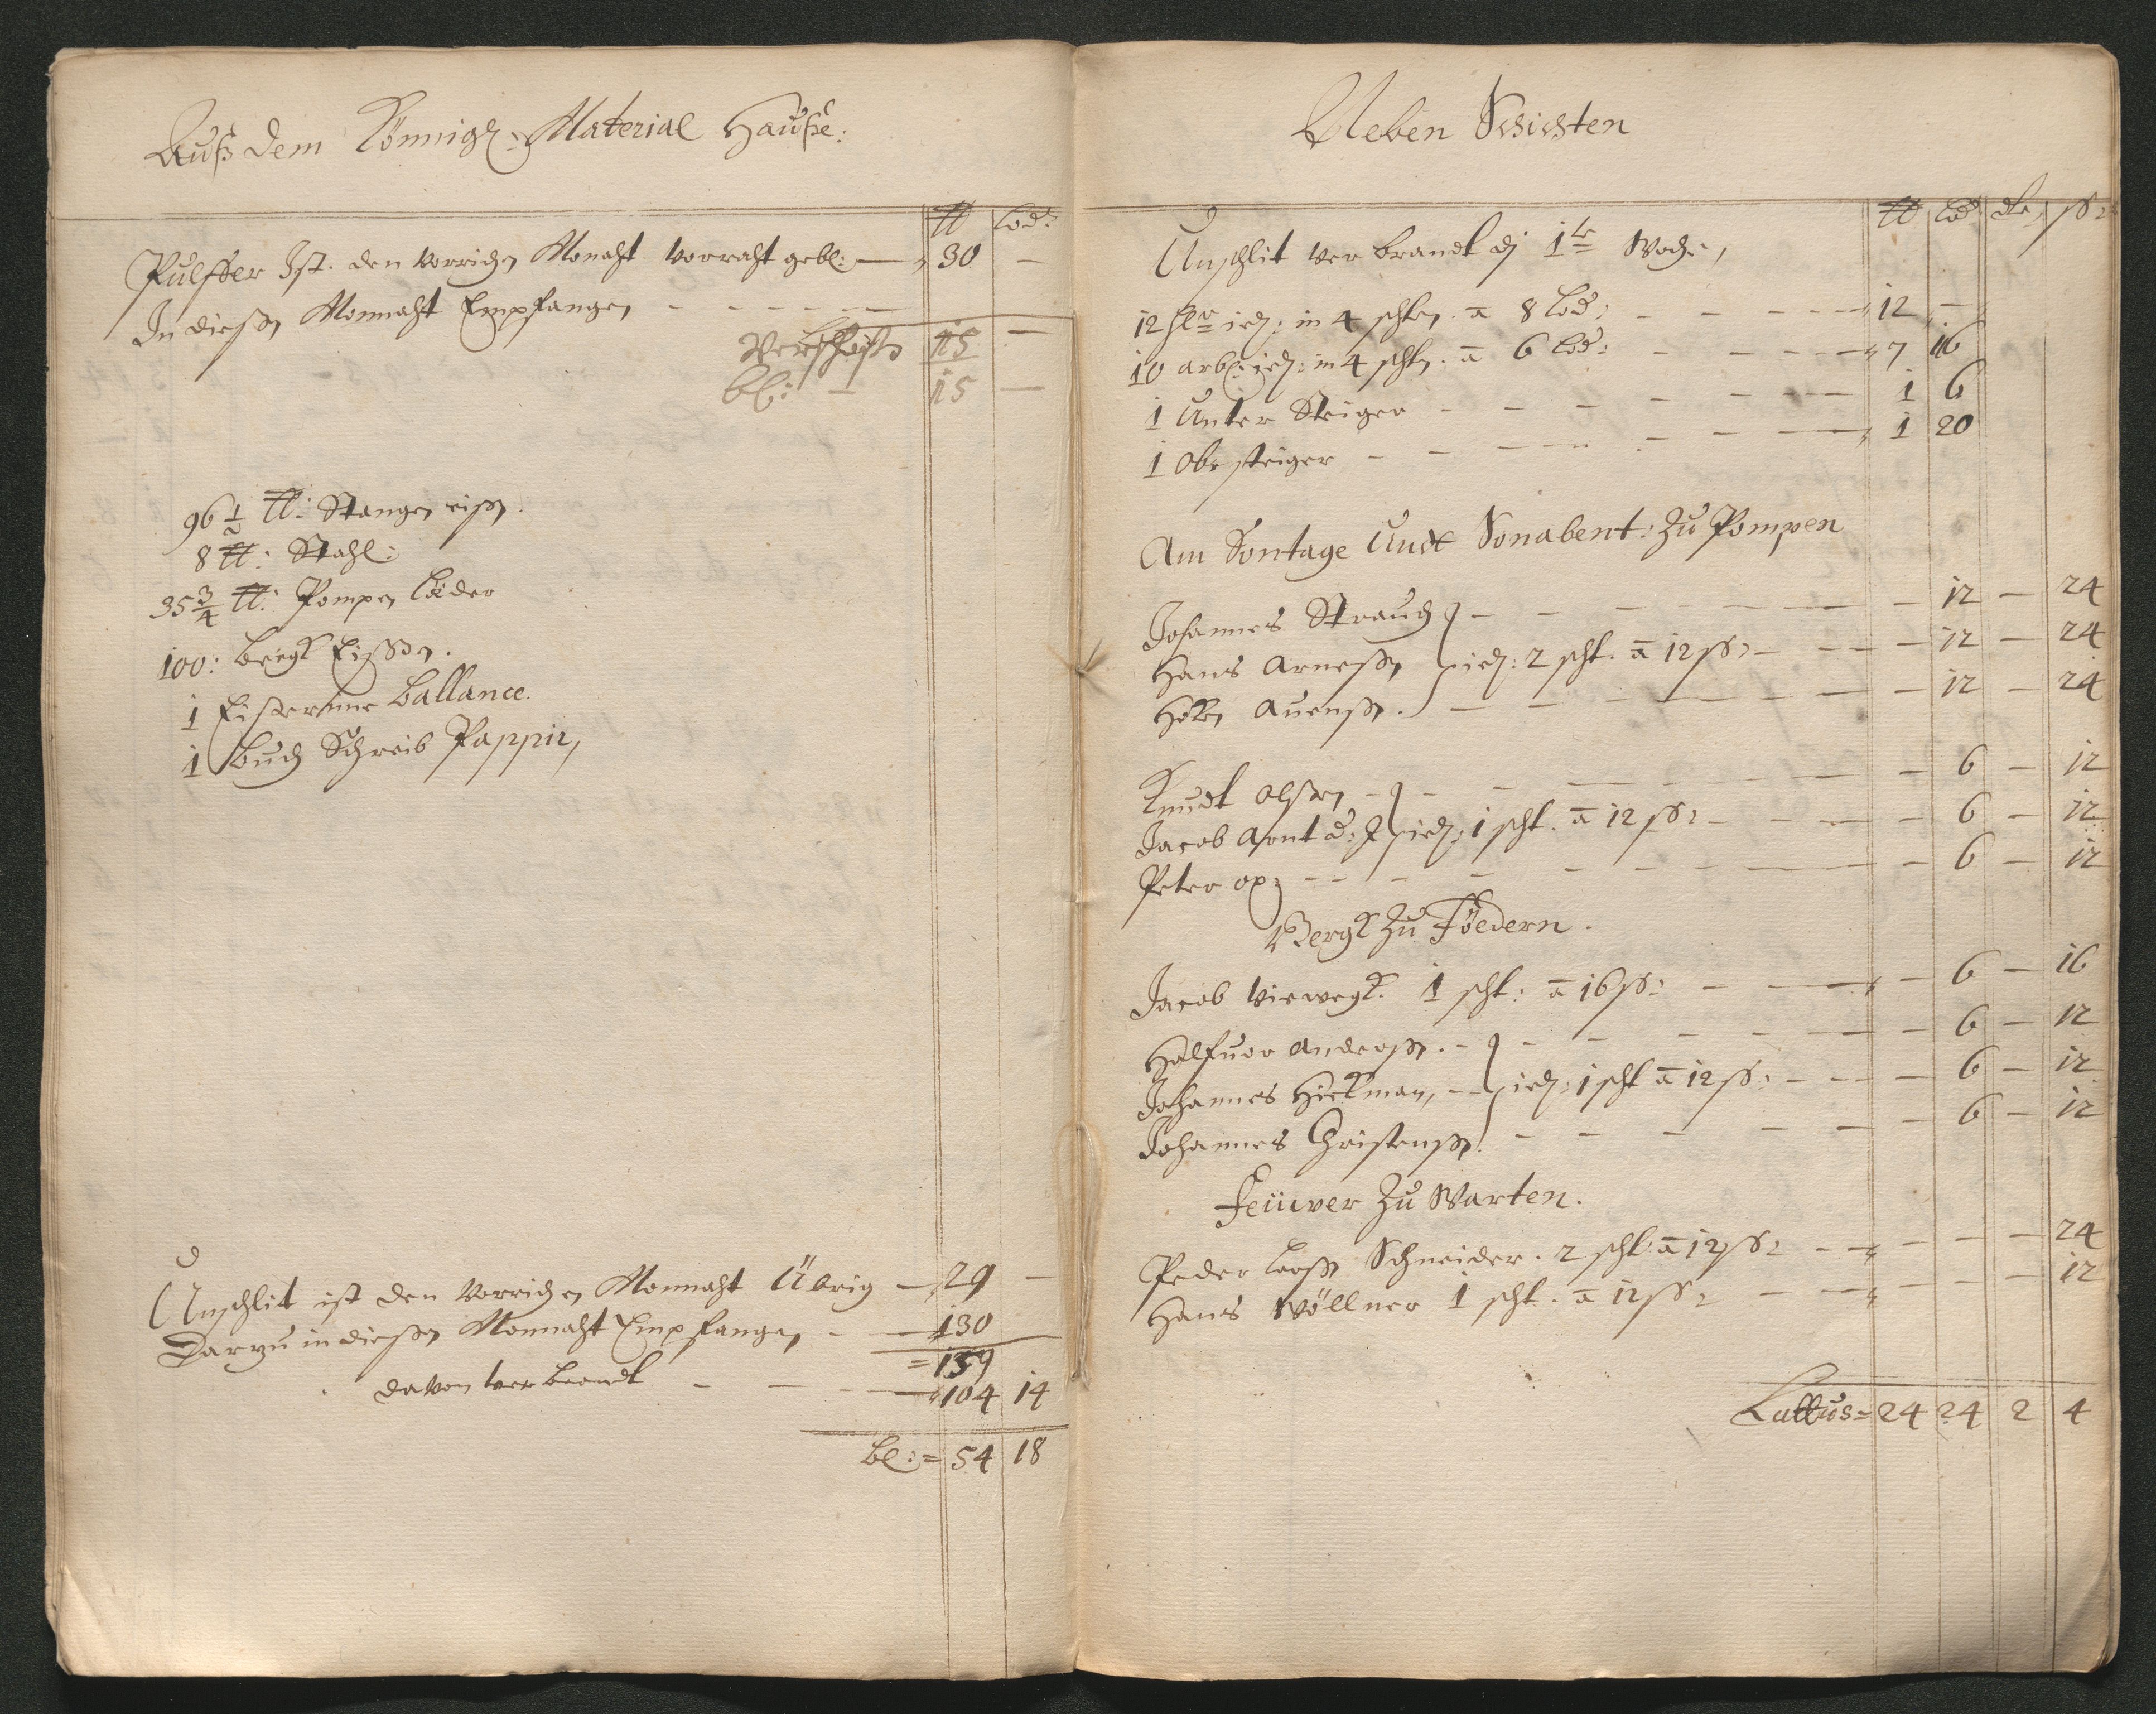 Auß dem Königl: Material Hauße:
℔ Lod:
Pulffer Ist. den vorrigen Monaht vorraht gebl: — 30 —
In dießen Monnaht Empfangen — — — — — —
Verschoßen 15 —
bl: — 15 —
96 1/2 ℔: Stangen eißen.
8 ℔: Stahl:
35 3/4 ℔: Pompen Läder
100: bergk Eißen.
1 Eißerne Ballance.
1 Buch Schreib Pappir,
Unschlit ist den vorrigen Monnaht Übrig — 29 —
Darzu in dießen Monnaht Empfangen — — 130
= 159
davon verbrandt — — — 104 14
bl: = 54 18
Neben Schichten
℔ Lod: ß:
Unschlit verbrandt di 1te Woch:,
12 jed: in 4 schten. a 8 Lod: — — — — 12 —
10 arb: jed: in 4 schtn. a 6 Lod: — — — — 7 16
1 Unter Steiger — — — — — — 1 6
1 Obersteiger — — — — — — 1 20
Am Sontage Undt Sonabent: Zu Pompen
Johannes Strauch — — — — — — 12 — 24
Hans Arneßen jed: 2 scht. a 12 ß: — — — 12 — 24
Auenßen. — — — — — — 12 — 24
Knudt Olßen — — — — — — 6 — 12
Jacob Arnt jed: 1 scht. a 12 ß: — — — — 6 — 12
Peter — — — — — — — 6 — 12
Bergk Zu Föedern.
Jacob Viewegk. 1 scht: a 16 ß: — — — — 6 — 16
Halfuor Anderßen. — — — — — — 6 — 12
Johannes Hickman, — jed: 1 scht a 12 ß: — — — 6 — 12
Johannes Christenßen — — — — — — 6 — 12
Feüwer Zu Warten.
Peder Larßen Schneider. 2 scht. a 12 ß: — — — — — 24
Hans Wöllner 1 scht. a 12 ß: — — — — — 12
Lattus = 24 24 2 4